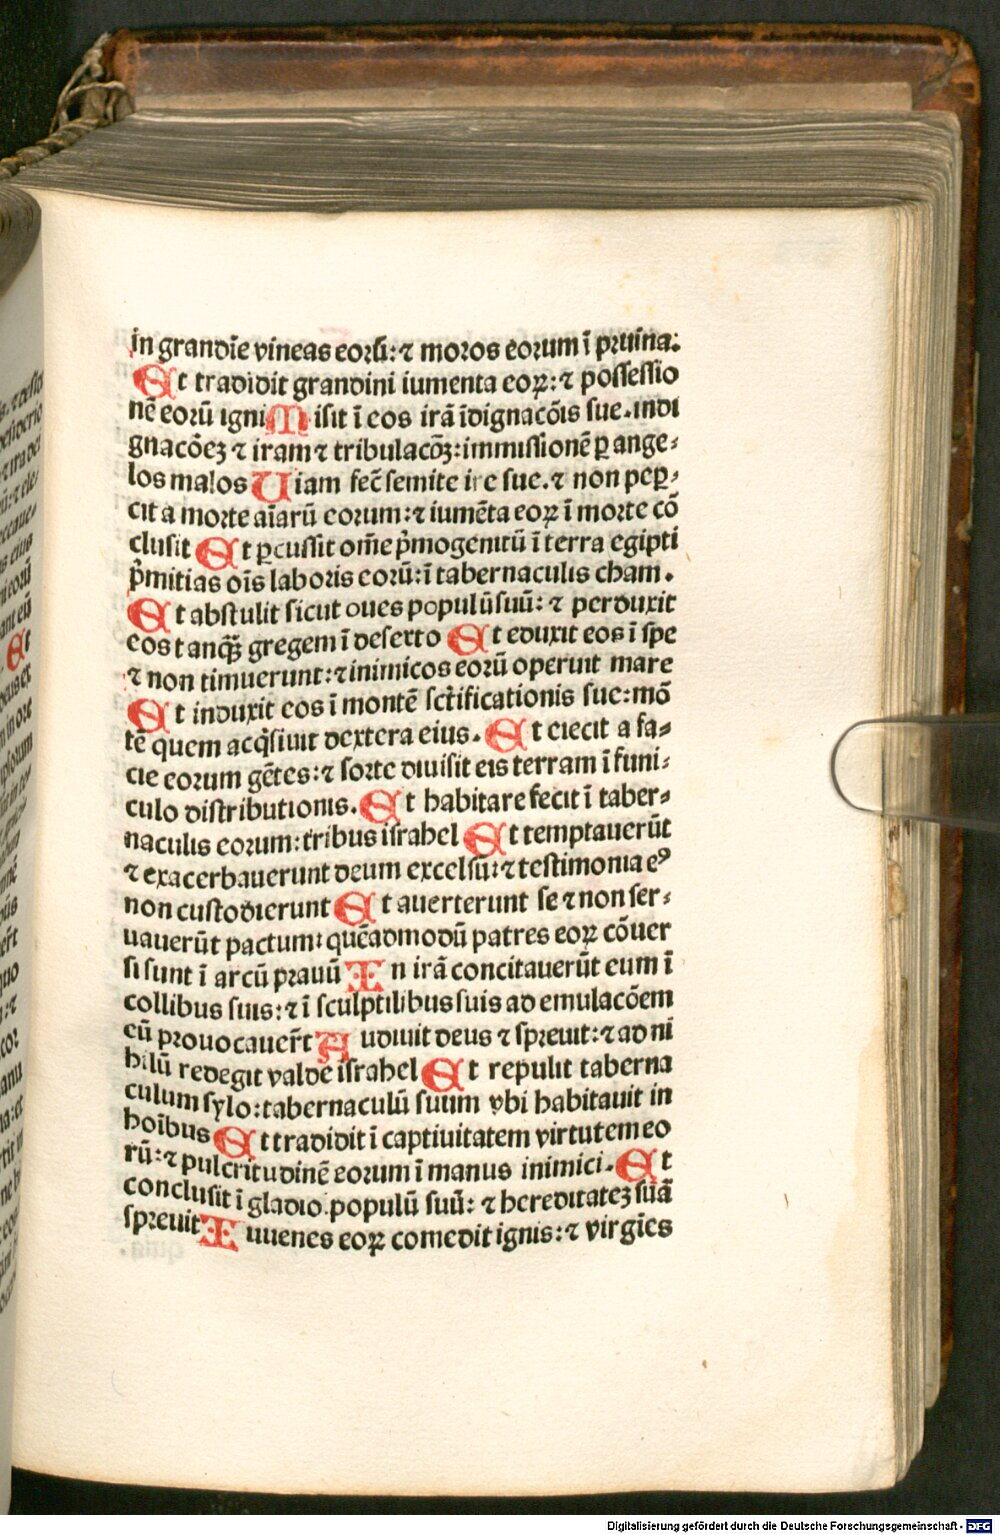 in grandīe vineas eorū: ⁊ moros eorum ī pruina:
Et tradidit grandini iumenta eoꝝ: ⁊ possessio
nē eorū igni Misit ī eos irā īdignacōis sue. indi
gnacōeꝫ ⁊ iram ⁊ tribulacōꝫ: immissionē ꝑ ange⸗
los malos Uiam fec̄ semite ire sue. ⁊ non peꝑ⸗
cit a morte aīarū eorum: ⁊ iumēta eoꝝ ī morte cō
clusit Et ꝑcussit om̄e pͥmogenitū ī terra egipti
pͥmitias oīs laboris eorū: ī tabernaculis cham.
Et abstulit sicut oues populū suū: ⁊ perduxit
eos tanqꝫ̄ gregem ī deserto Et eduxit eos ī spe
⁊ non timuerunt: ⁊ inimicos eorū operuit mare
Et induxit eos ī montē sctīficationis sue: mō
tē quem acqͥsiuit dextera eius. Et eiecit a fa⸗
cie eorum gētes: ⁊ sorte diuisit eis terram ī funi⸗
culo distributionis. Et habitare fecit ī taber⸗
naculis eorum: tribus israhel Et temptauerūt
⁊ exacerbauerunt deum excelsū: ⁊ testimonia eꝰ
non custodierunt Et auerterunt se ⁊ non ser⸗
uauerūt pactum: quēadmodū patres eoꝝ cōuer
si sunt ī arcū prauū In irā concitauerūt eum ī
collibus suis: ⁊ ī sculptilibus suis ad emulacōem
eū prouocauer̄t Audiuit deus ⁊ spreuit: ⁊ ad ni
hilū redegit valde israhel Et repulit taberna
culum sylo: tabernaculū suum vbi habitauit in
hoībus Et tradidit ī captiuitatem virtutem eo
rū: ⁊ pulcritudinē eorum ī manus inimici. Et
conclusit ī gladio populū suū: ⁊ hereditateꝫ suā
spreuit Iuuenes eoꝝ comedit ignis: ⁊ virgīes
Digitalisierung gefördert durch die Deutsche Forschungsgemeinschaft - DFG